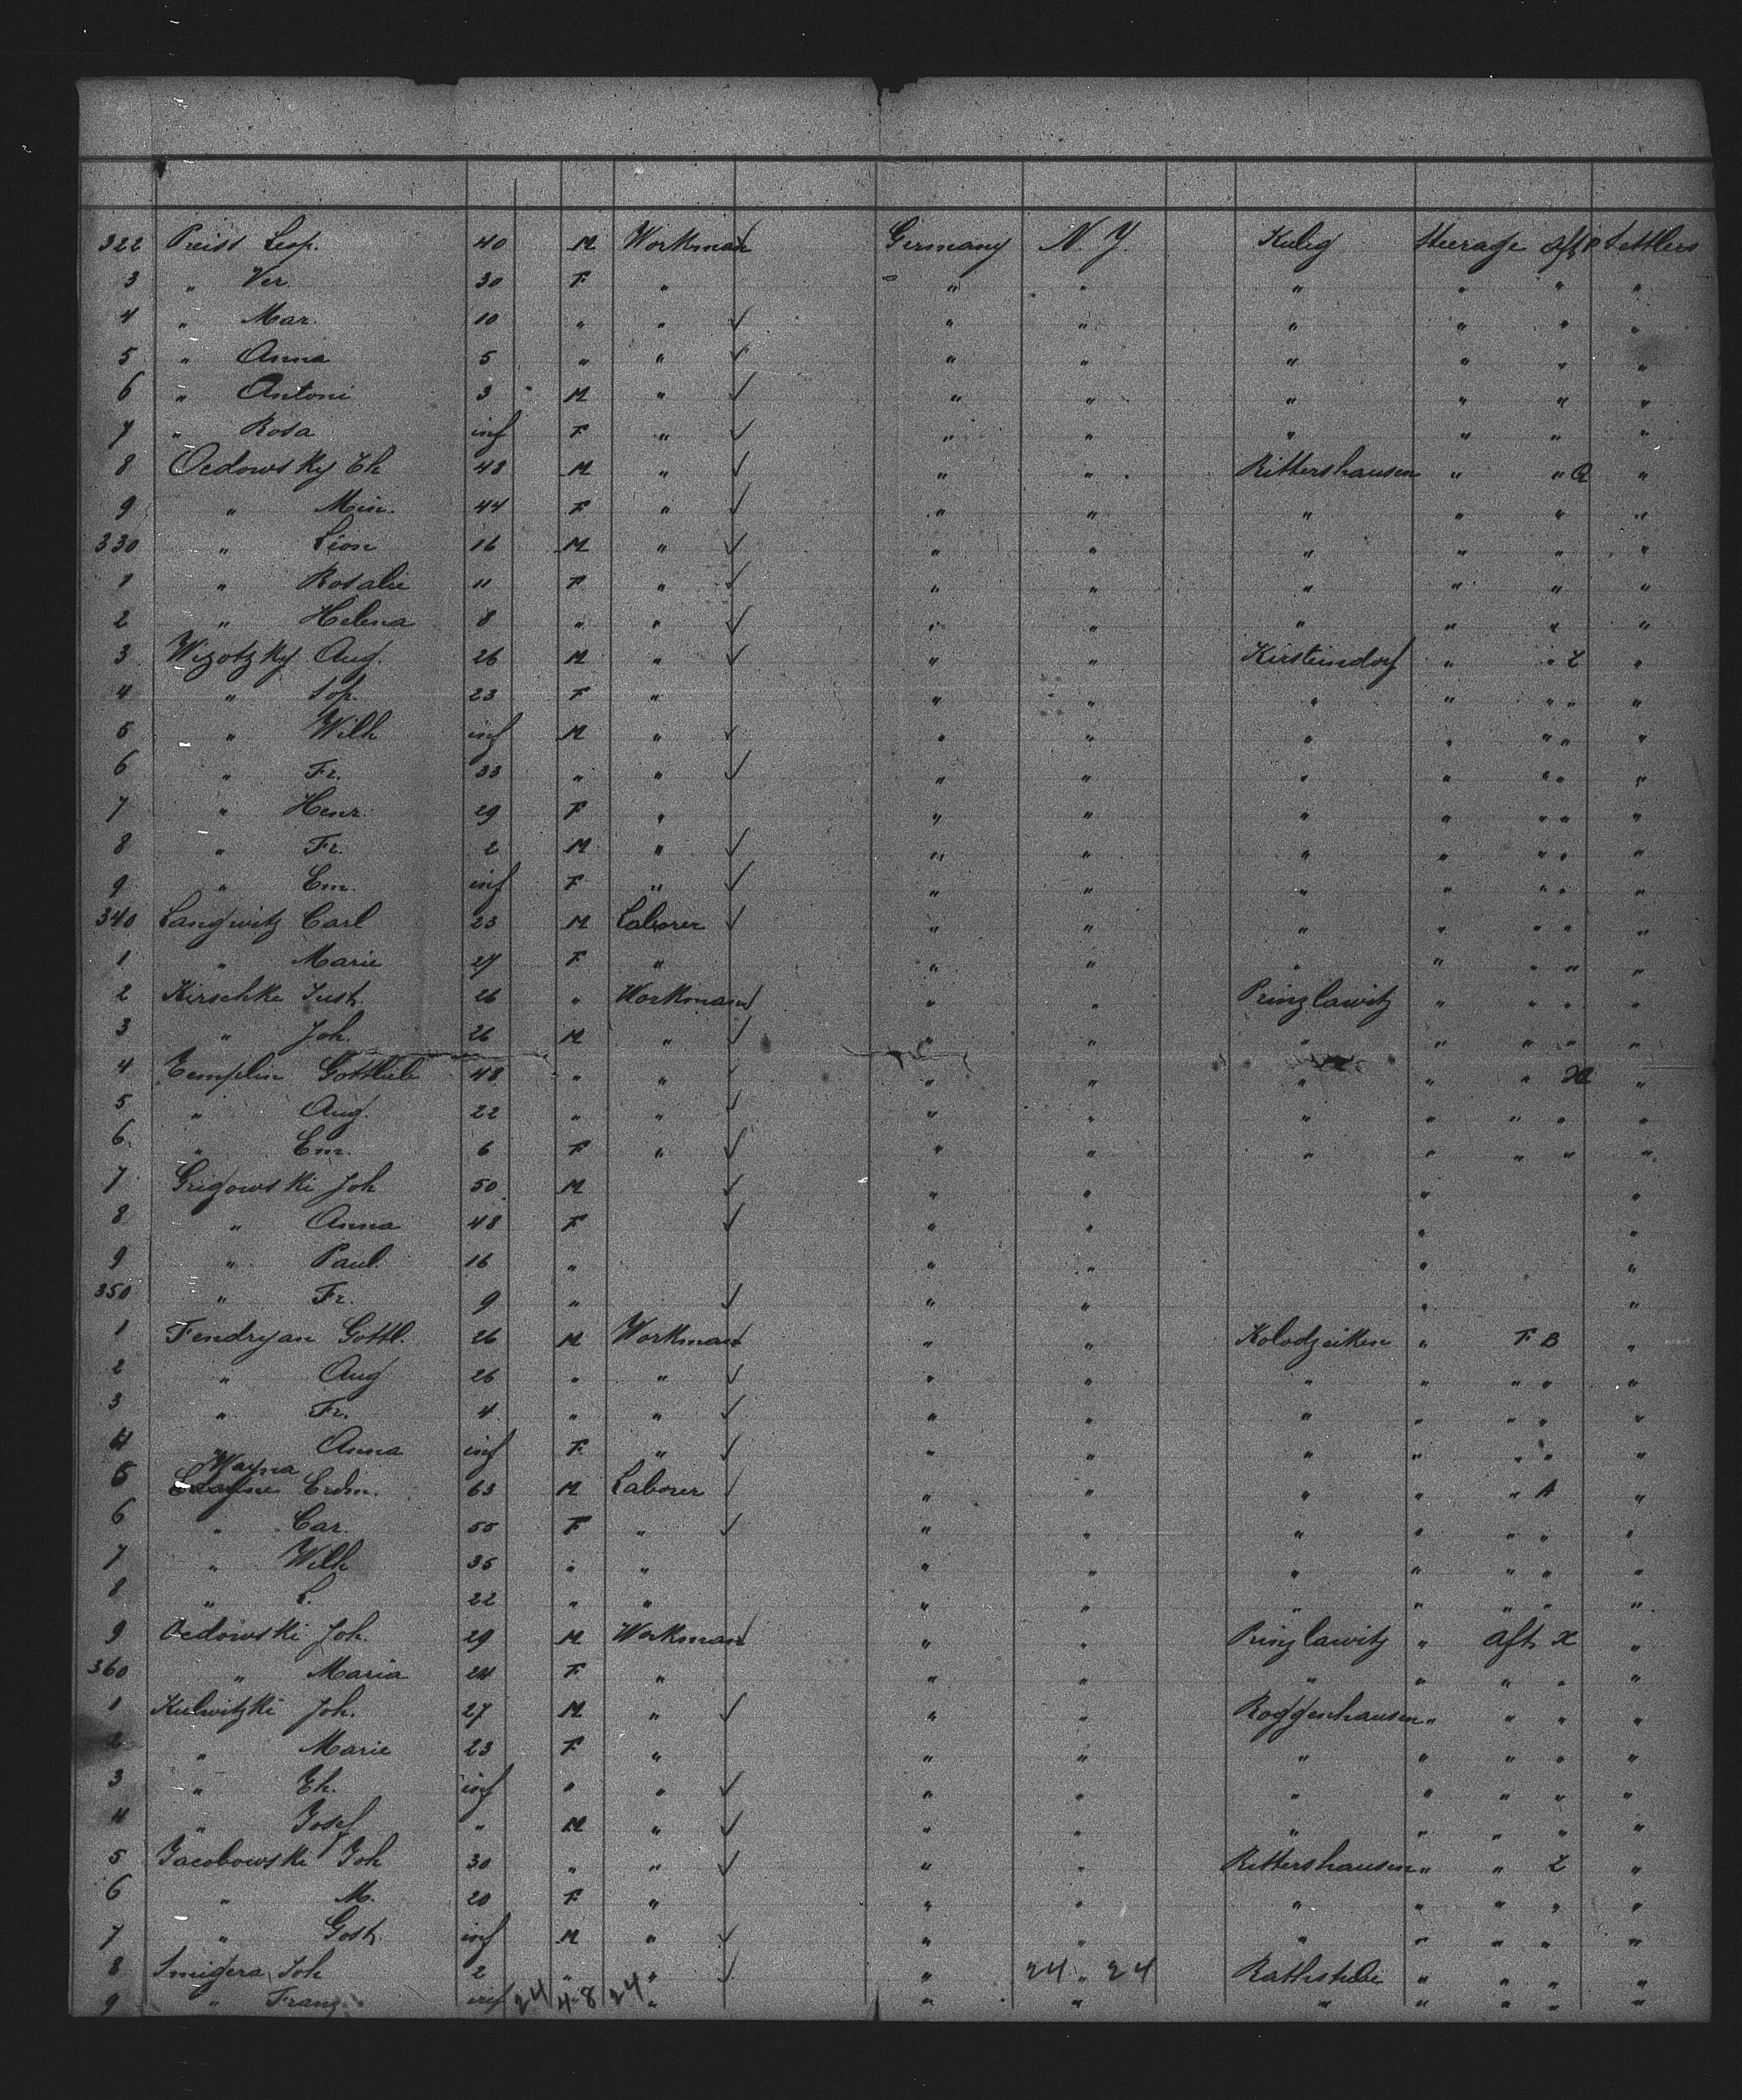 322 Preist Leop. 40 M Workman Germany N. Y. Kulig Steerage aft P Settlers
3 " Ver. 30 F " " " " " " "
4 " Mar. 10 " " " " " " " "
5 " Anna 5 " " " " " " " "
6 " Antoni 3 M " " " " " " "
7 " Rosa inf F " " " " " " "
8 Oedowsky Th 48 M " " " Rittershausen " " Q "
9 " Min. 44 F " " " " " " "
330 " Leon 16 M " " " " " " "
1 " Rosalie 11 F " " " " " " "
2 " Helena 8 " " " " " " " "
3 Wizotzky Aug. 26 M " " " Kirsteindorf " " Z "
4 " Sop. 23 F " " " " " " " "
5 " Wilh inf M " " " " " " " "
6 " Fr. 33 " " " " " " " " "
7 " Henr. 29 F " " " " " " " "
8 " Fr. 2 M " " " " " " " "
9 " Em. inf F " " " " " " " "
340 Langwitz Carl 23 M Laborer " " " " " " "
1 " Marie 27 F " " " " " " " "
2 Kirschke Just. 26 " Workman " " Prinzlawitz " " " "
3 " Joh. 26 M " " " " " " " "
4 Templin Gottlieb 48 " " " " " " " "
5 " Aug. 22 " " " " " " " " "
6 " Em. 6 F " " " " " " " "
7 Grigowski Joh 50 M " " " "
8 " Anna 48 F " " " "
9 " Paul 16 " " " " "
350 " Fr. 9 " " " " "
1 Fendryan Gottl. 26 M Workman " " Kolodzeiken " F B "
2 " Aug 26 " " " " " " " " "
3 " Fr. 4 " " " " " " " " "
4 " Anna inf F " " " " " " " "
Wayna
5 Erdm. 63 M Laborer " " " " " A "
6 " Car. 55 F " " " " " " " "
7 " Wilh 35 " " " " " " " " "
8 " L. 22 " " " " " " " " "
9 Oedowski Joh. 29 M Workman " " Prinzlawitz " aft X "
360 " Maria 24 F " " " " " " " "
1 Kulwitzki Joh. 27 M " " " Roggenhausen " " " "
2 " Marie 23 F " " " " " " " "
3 " Th. inf " " " " " " " " "
4 " Josef " M " " " " " " " "
5 Jacobowski Joh 30 " " " " Rittershausen " " Z "
6 " M. 20 F " " " " " " " "
7 " Gost. inf M " " " " " " " "
8 Smigera Joh 2 " " " 24 " 24 " " " "
9 " Franz inf 24 48 24 " " " " " " " "